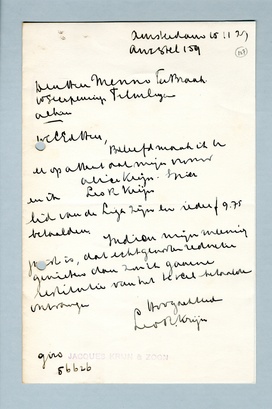 Amsterdam 15 11 29
Amstel 159
Den Heer Menno Ter Braak
Filmliga
alhier
Beleefd maak ik
er op attent dat mijn vrouw
en ik Leo R Krijn
lid van de Liga zijn en ieder f 9.75
betaalden.
Indien mijn meening
juist is, dat echtgenooten reductie
genieten dan zou ik gaarne
restitutie van het te veel betaalde
ontvangen
Hoogachtend
Leo R Krijn
giro
56626
JACQUES KRIJN & ZOON